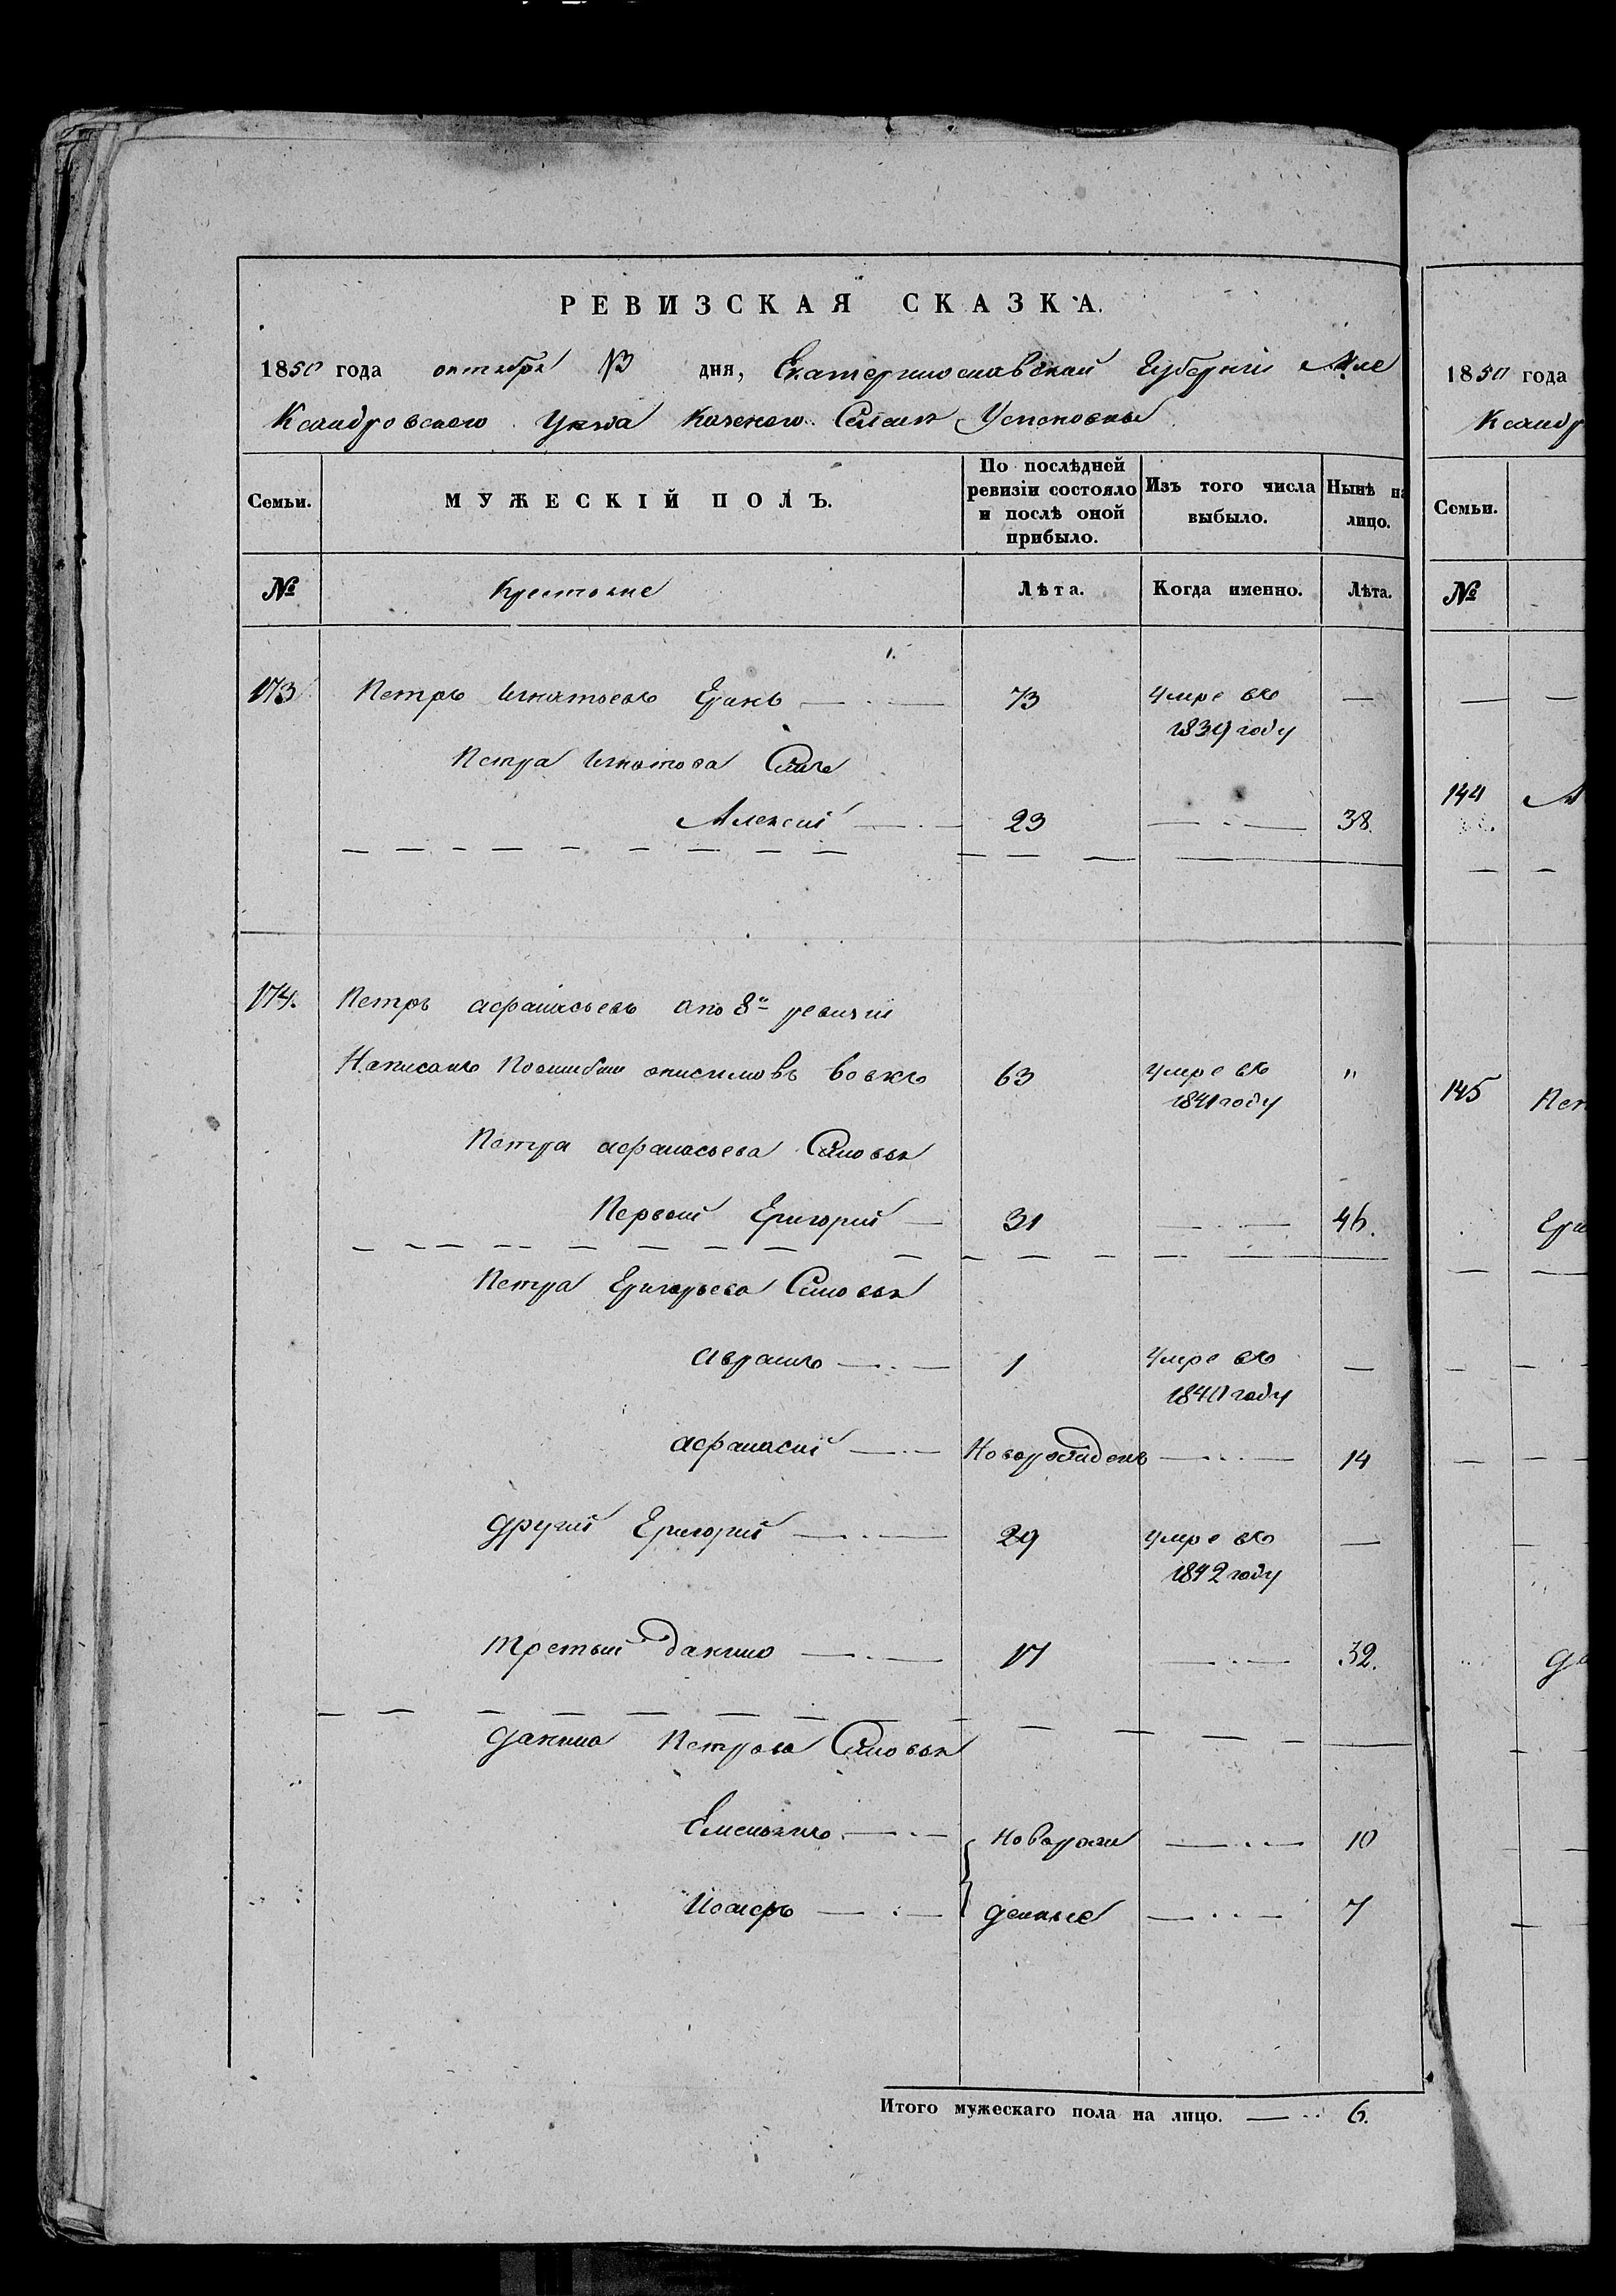 РЕВИЗСКАЯ СКАЗКА.
1850 года октября 13 дня, Екатеринославской Губернiи Але
Ксандровского Уезда Казенного Селенiя Успеновки
Семьи. МУЖЕСКІЙ ПОЛЪ. По послѣдней ревизіи состояло и послѣ оной прибыло. Изъ того числа выбыло. Нынѣ на лицо.
№ Крестьяне Лѣта. Когда именно. Лѣта.
173 Петръ Игнатьевъ 73 умре въ 1839 году —
Петра Игнатова Сынъ
Алексiй 23 — 38.
174. Петръ афанасьевъ а по 8й ревизiи
Написанъ Поошибки онисимовъ вовкъ 63 умре въ 1841 году "
Петра афанасьева Сыновья
Первый Григорiй 31 — 46.
Петра Григорьева Сыновья
аврамъ 1 умре въ 1840 году —
афанасiй Новорожденъ — 14
другiй Григорiй 29 умре въ 1842 году —
третый данило 17 — 32.
данила Петрова Сыновья
Емельянъ новорож — 10
Иосифъ денные — 7
Итого мужескаго пола на лицо. — 6.
1850 года
Ксандр
Семьи.
№
144 А
145 Пет
Гри